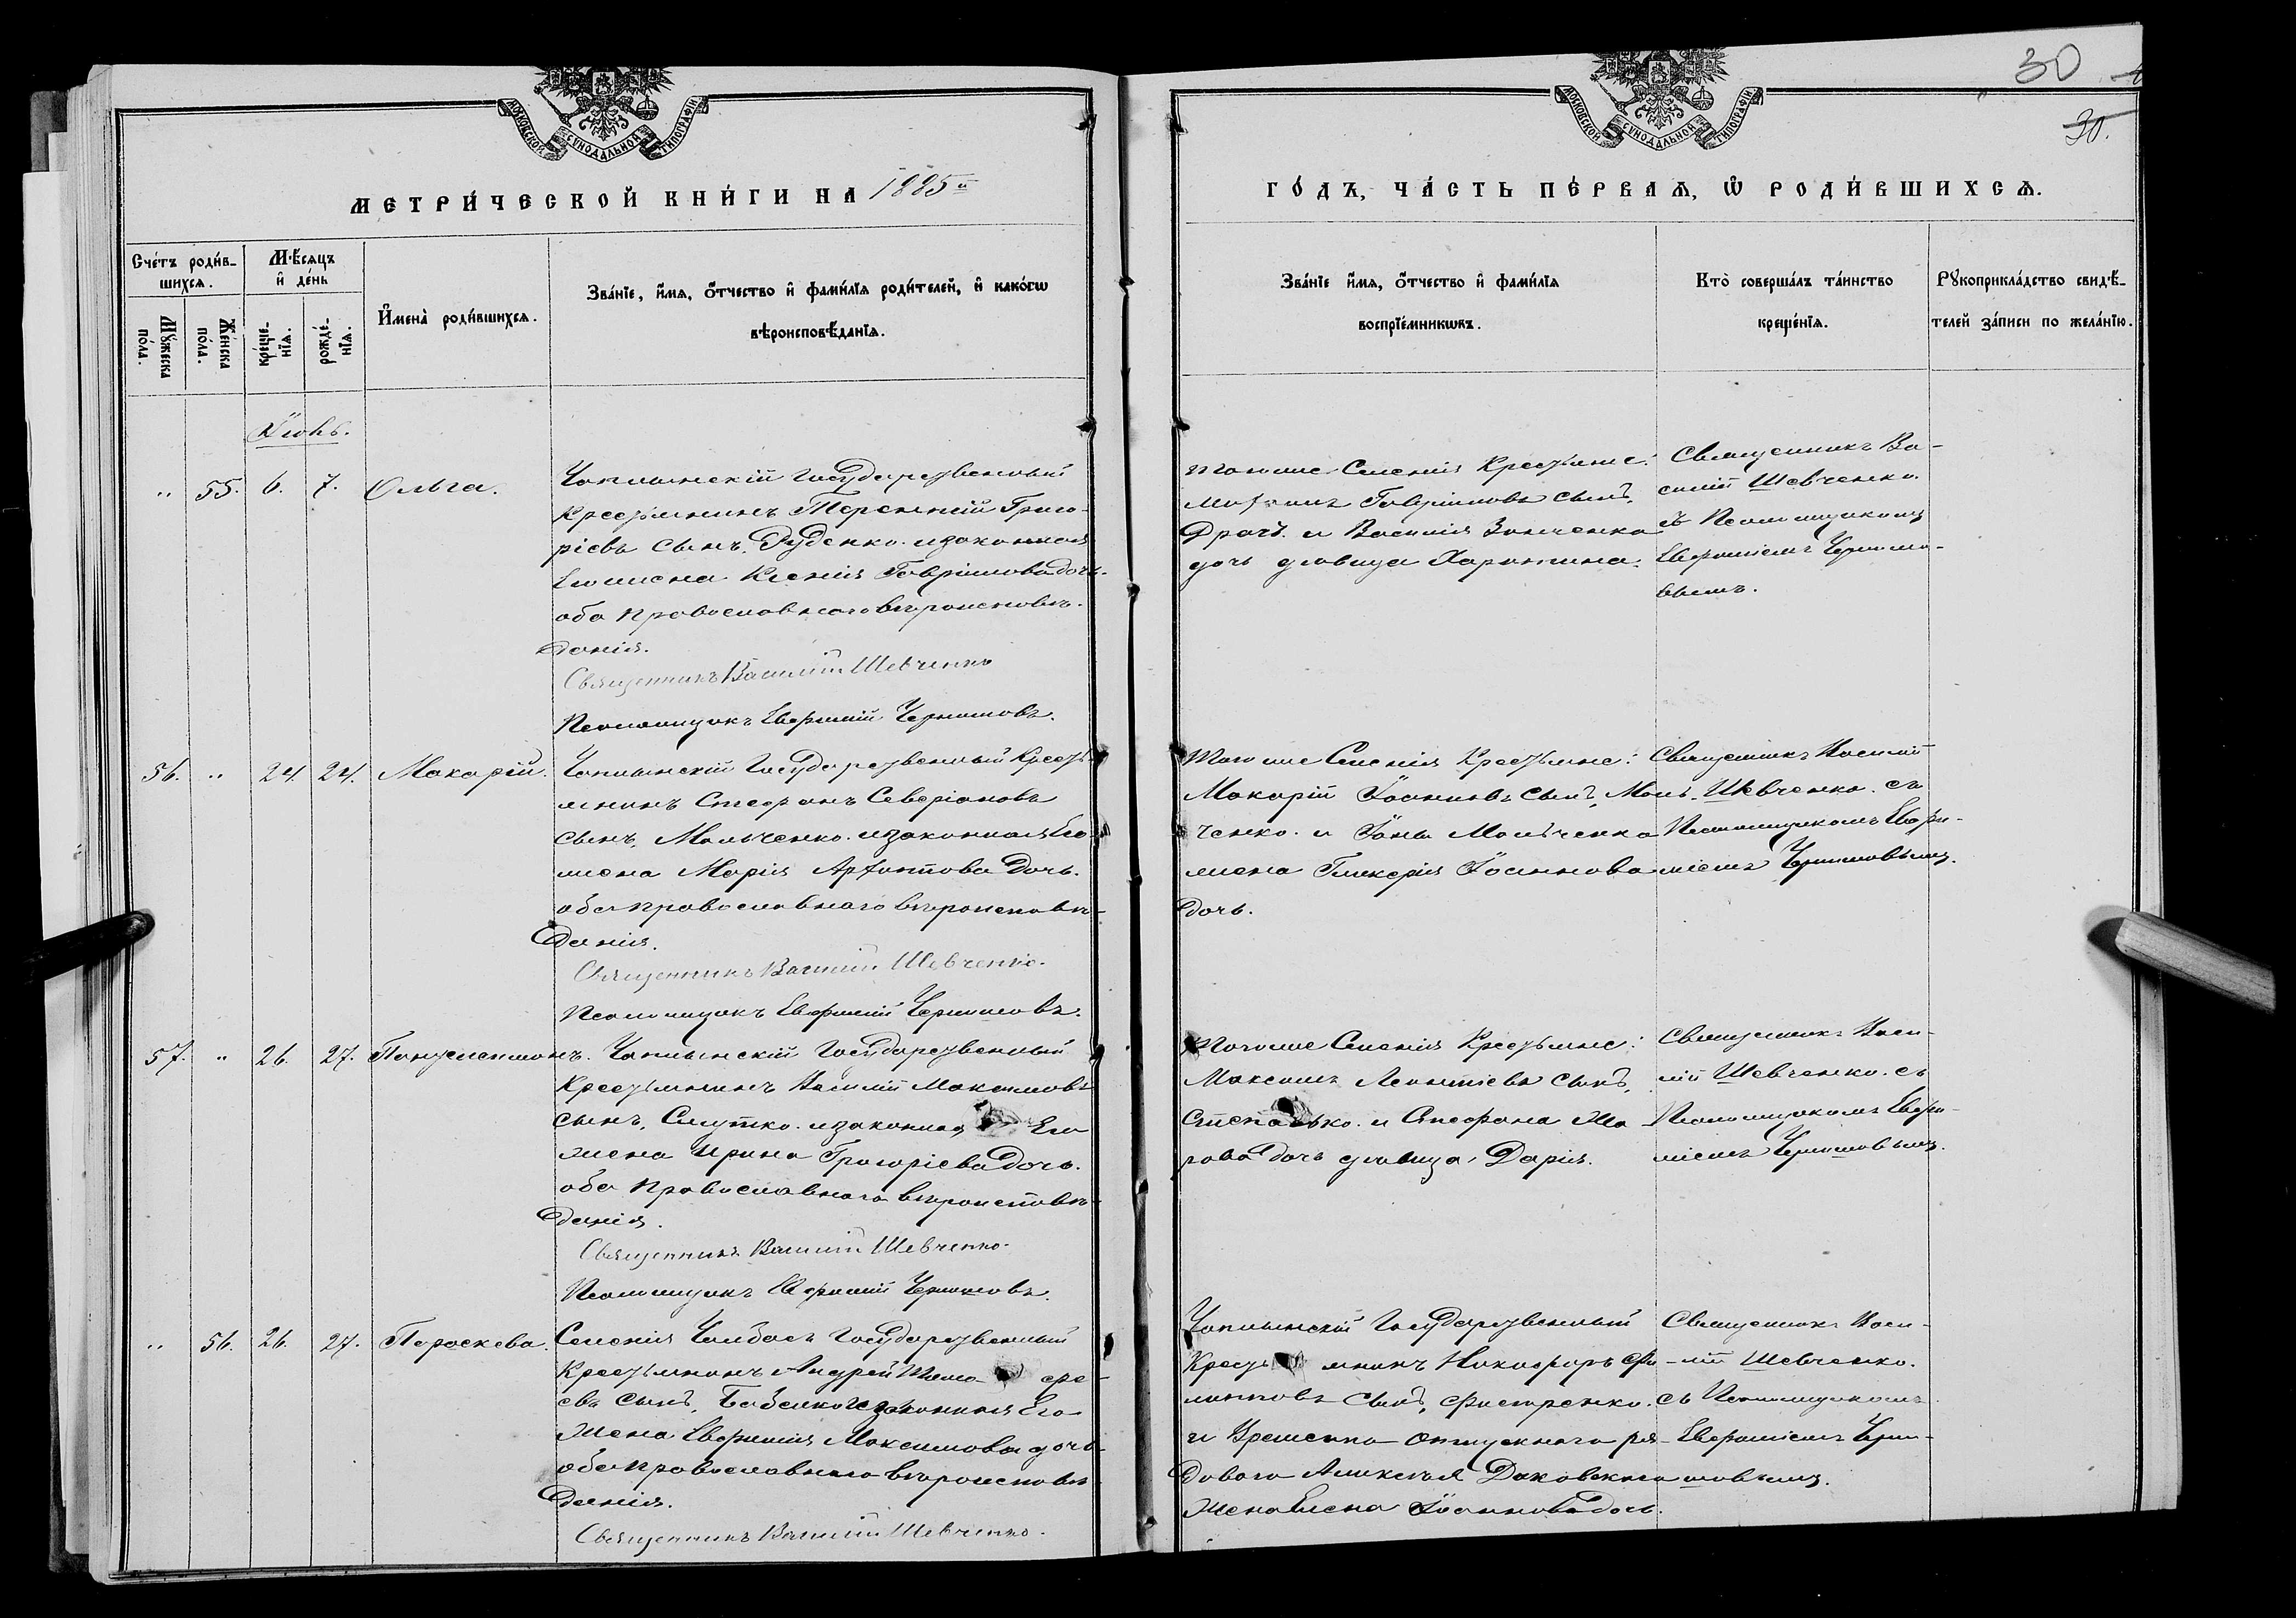 30
30.
МОСКОВСКОЙ СУНОДАЛЬНОЙ ТИПОГРАФІИ
МОСКОВСКОЙ СУНОДАЛЬНОЙ ТИПОГРАФІИ
МЕТРИ́ЧЕСКОЙ КНИ́ГИ НА 1885й
ГО́ДЪ, ЧА́СТЬ ПЕ́РВАѦ, Ѽ РОДИ́ВШИХСѦ.
Сче́тъ роди́в-
шихсѧ.
Мꙋжеска по́ла.
Же́нска по́ла.
Мѣ́сѧцъ
и де́нь
креще́-
нїѧ.
рожде́-
нїѧ.
Имена̀ роди́вшихсѧ.
Зва́нїе, и́мѧ, ѻ́тчество и фами́лїѧ роди́телей, и како́гѡ
вѣроисповѣ́данїѧ.
Зва́нїе и́мѧ, ѻ́тчество и фами́лїѧ
воспрїе́мникѡвъ.
Кто̀ соверша́лъ та́инство
креще́нїѧ.
Рꙋкоприкла́дство свидѣ́-
телей за́писи по жела́нїю.
Іюнь.
" 55. 6. 7. Ольга.
Чаплынскій Государственный
Крестьянинъ Терентій Григо-
ріевъ сынъ, Руденко. и законная
Его жена Ксенія Гавріилова дочь.
оба православнаго вѣроисповѣ-
данія.
Священникъ Василій Шевченко
Псаломщикъ Евфимій Чернышовъ.
тогоже Селенія Крестьяне:
Гавріиловъ сынъ,
Драчъ. и Василія Зинченка
дочь дѣвица Харитина.
Священникъ Ва-
силій Шевченко.
съ Псаломщикомъ
Евфиміемъ Чернышо-
вымъ.
56. " 24. 24. Макарій.
Чаплынскій Государственный Кресть-
янинъ Стефанъ Северіановъ
сынъ, Мальченко. и законная Его
жена Марія дочь.
оба православнаго вѣроисповѣ-
данія.
Священникъ Василій Шевченко.
Псаломщикъ Евфимій Чернышовъ.
Тогоже Селенія Крестьяне:
Макарій Іоанновъ сынъ, Маль-
ченко. и Іоны Мальченка
жена Гликерія Іоаннова
дочь.
Священникъ Василій
Шевченко. съ
Псаломщикомъ Евфи-
міемъ Чернышовымъ.
57. " 26. 27. Пантелеимонъ.
Чаплынскій Государственный
Крестьянинъ Василій Максимовъ
сынъ, и законная Его
жена Ирина Григоріева дочь.
оба Православнаго вѣроисповѣ-
данія.
Священникъ Василій Шевченко.
Псаломщикъ Евфимій Чернышовъ.
Тогоже Селенія Крестьяне:
Максимъ Леонтіевъ сынъ,
и Стефана
дочь дѣвица, Дарія.
Священникъ Васи-
лій Шевченко. съ
Псаломщикомъ Евфи-
міемъ Чернышовымъ.
" 56. 26. 27. Параскева.
Селенія Чалбасъ Государственный
Крестьянинъ Андрей
евъ сынъ, Бабенко и законная Его
жена Евфимія Максимова дочь
оба православнаго вѣроисповѣ-
данія.
Священникъ Василій Шевченко.
Чаплынскій Государственный
Крестьянинъ Никифоръ Фи-
липповъ сынъ,
и Временно отпускнаго ря-
доваго Алексѣя Даковскаго
жена Елена Іоаннова дочь.
Священникъ Васи-
лій Шевченко.
съ Псаломщикомъ
Евфиміемъ Черны-
шовымъ.